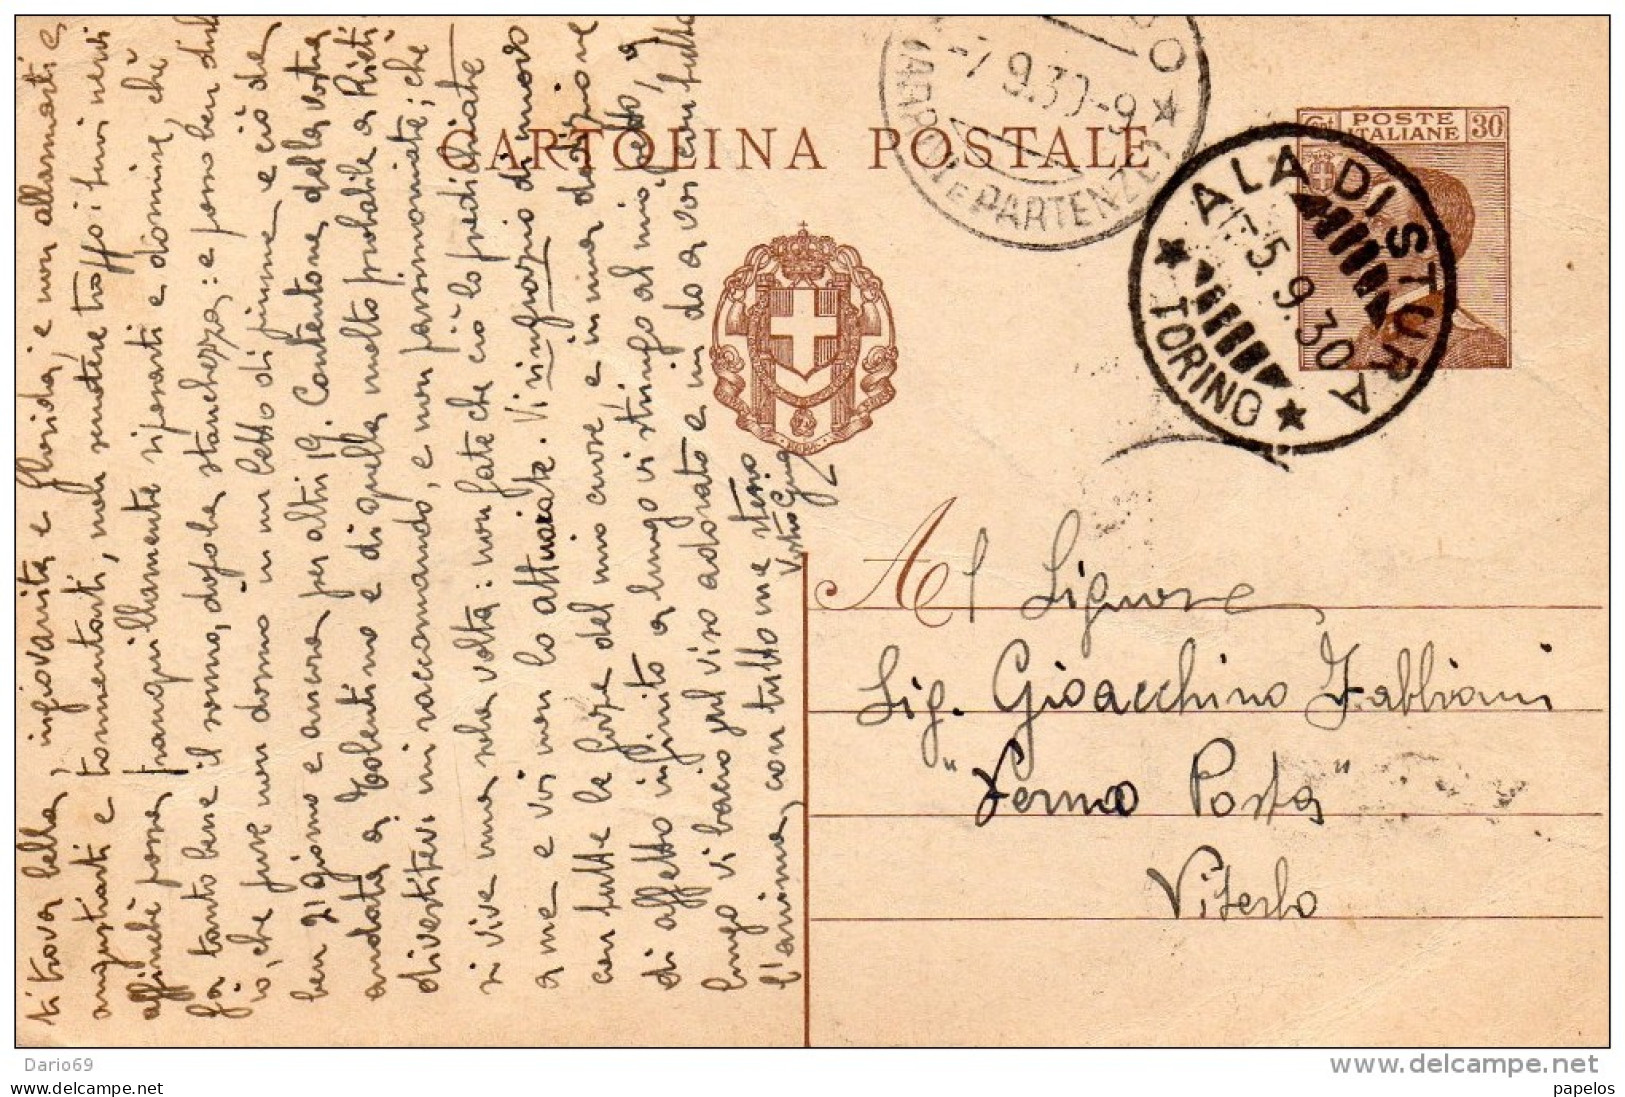 CARTOLINA POSTALE
ARRIVI E PARTENZE
-7 9.30-9
POSTE
ITALIANE
Cent 30
ALA DI STURA
-5.9.30
TORINO
Al Signore
Sig. Gioacchino Fabbiani
"Fermo Posta"
Viterbo
ti trova bella, ingiovanita e florida, e non allarmarti e
angustiarti e tormentarti, non scuotere troppo i tuoi nervi
affinché possa tranquillamente riposarti e dormire, che
fa tanto bene il sonno, dopo la stanchezza: e posso ben dirlo
io, che pure non dormo in un letto di piume e ciò de
ben 21 giorno e ancora per altri 19. Contentone della vostra
andata a Tolentino e di quella molto probabile a Rieti
divertitevi mi raccomando, e non parsimoniate; che
si vive una sola volta: non fate che ciò lo predichiate
a me e voi non lo attuiate. Vi ringrazio di nuovo
con tutte le forze del mio cuore e in una dedizione
di affetto infinito a lungo vi stringo al mio petto, a
lungo vi bacio sul viso adorato e mi do a voi con tutta
l'anima, con tutto me stesso
Vostro Gino
Dario69
www.delcampe.net
papelos